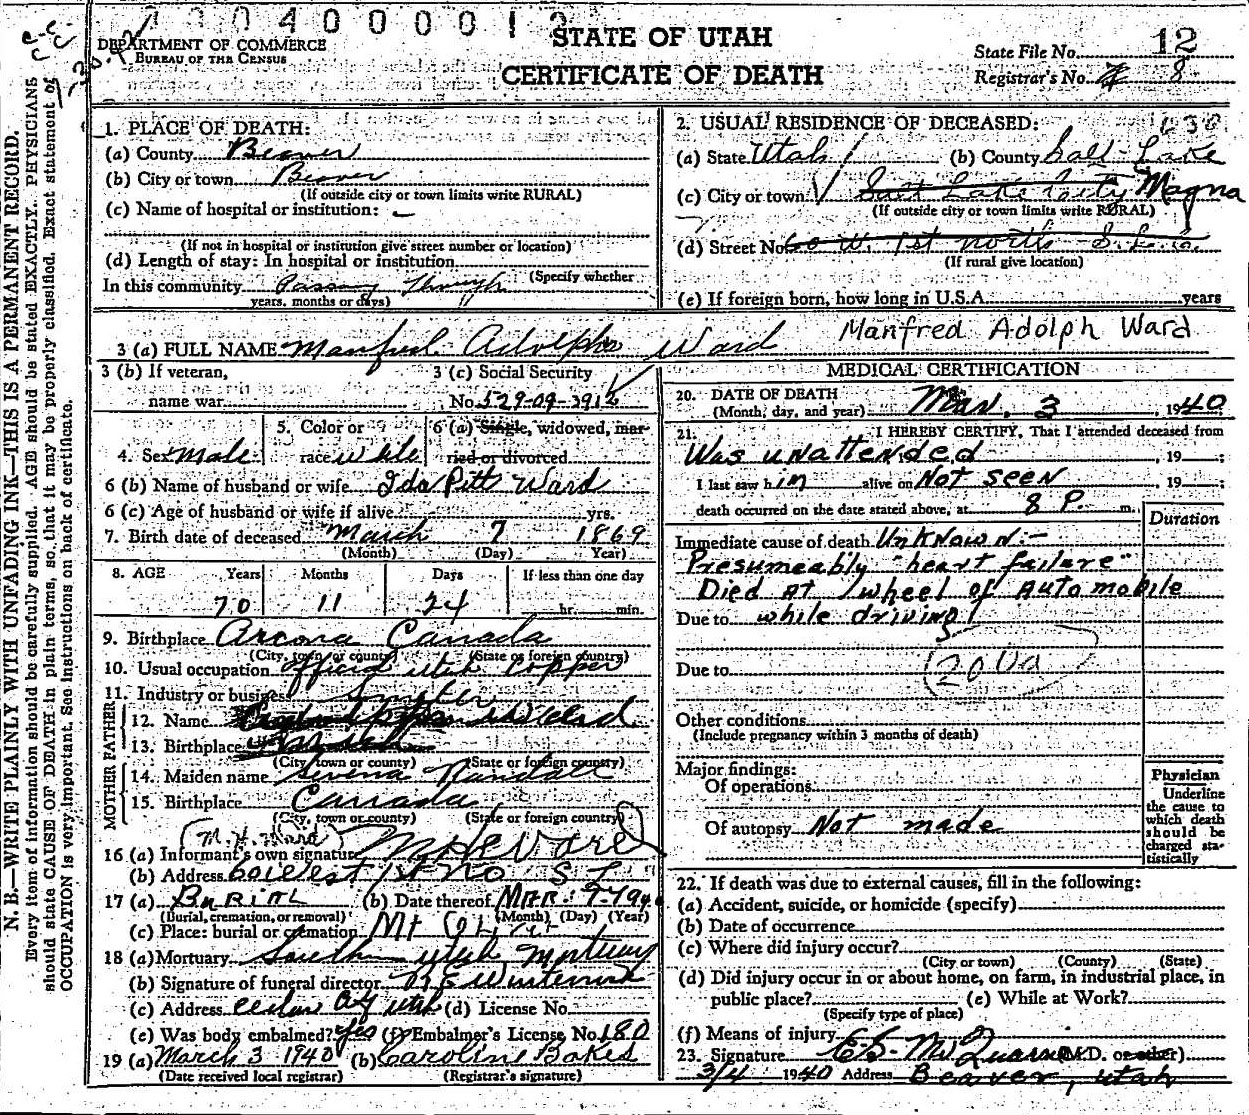 STATE OF UTAH
CERTIFICATE OF DEATH
DEPARTMENT OF COMMERCE
BUREAU OF THE CENSUS
State File No. 12
Registrar's No. 8
N. B.—WRITE PLAINLY WITH UNFADING INK—THIS IS A PERMANENT RECORD.
Every item of information should be carefully supplied. AGE should be stated EXACTLY. PHYSICIANS
should state CAUSE OF DEATH in plain terms, so that it may be properly classified. Exact statement of
OCCUPATION is very important. See instructions on back of certificate.
1. PLACE OF DEATH:
(a) County Beaver
(b) City or town Beaver
(If outside city or town limits write RURAL)
(c) Name of hospital or institution: –
(If not in hospital or institution give street number or location)
(d) Length of stay: In hospital or institution
(Specify whether
In this community Passing through
years, months or days)
2. USUAL RESIDENCE OF DECEASED:
(a) State Utah (b) County Salt Lake
(c) City or town Salt Lake City Magna
(If outside city or town limits write RURAL)
(d) Street No. W. 1st North S.L.C.
(If rural give location)
(e) If foreign born, how long in U.S.A. years
3 (a) FULL NAME Manfred Adolphs Ward Manfred Adolph Ward
3 (b) If veteran,
name war
3 (c) Social Security
No. 529-09-3912
4. Sex Male
5. Color or
race white
6 (a) Single, widowed, mar-
ried or divorced
6 (b) Name of husband or wife Ida Pitt Ward
6 (c) Age of husband or wife if alive yrs.
7. Birth date of deceased March 7 1869
(Month) (Day) Year)
8. AGE Years Months Days If less than one day
70 11 24 hr. min.
9. Birthplace Arcona Canada
(City, town, or county) (State or foreign country)
10. Usual occupation official utah copper
11. Industry or business Smelter
FATHER
12. Name
13. Birthplace
(City town or county) (State or foreign country)
MOTHER
14. Maiden name Serena Randall
15. Birthplace Canada
(City, town or county) (State or foreign country)
(M. H. Ward)
16 (a) Informant's own signature M H Ward
(b) Address
17 (a) Burial (b) Date thereof Mar. 7-1940
(Burial, cremation, or removal) (Month) (Day) (Year)
(c) Place: burial or cremation Mt
18 (a) Mortuary Southern Utah Mortuary
(b) Signature of funeral director
(c) Address Cedar City Utah (d) License No.
(e) Was body embalmed? Yes (f) Embalmer's License No. 180
19 (a) March 3 1940 (b) Caroline Bakes
(Date received local registrar) (Registrar's signature)
MEDICAL CERTIFICATION
20. DATE OF DEATH
(Month, day, and year) Mar. 3, 1940
21. I HEREBY CERTIFY, That I attended deceased from
Was unattended, 19 ;
I last saw him alive on Not seen, 19 ;
death occurred on the date stated above, at 8 P. m.
Duration
Immediate cause of death Unknown:-
Presumeably "heart failure"
Died at wheel of automobile
Due to while driving
Due to
(200a)
Other conditions
(Include pregnancy within 3 months of death)
Major findings:
Of operations
Of autopsy Not made
Physician
Underline
the cause to
which death
should be
charged sta-
tistically
22. If death was due to external causes, fill in the following:
(a) Accident, suicide, or homicide (specify)
(b) Date of occurrence
(c) Where did injury occur?
(City or town) (County) (State)
(d) Did injury occur in or about home, on farm, in industrial place, in
public place? (e) While at Work?
(Specify type of place)
(f) Means of injury
23. Signature (M.D. or other)
3/4 1940 Address Beaver, Utah